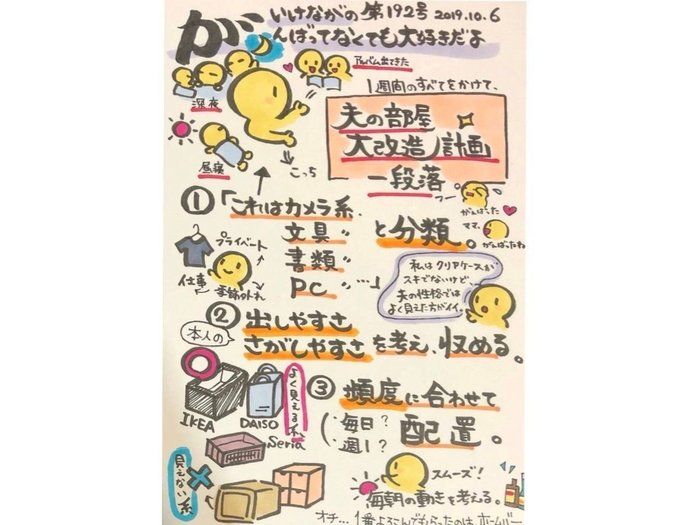 いけながの 第192号 2019.10.6
がんばってなくても大好きだよ
アルバム出てきた
深夜
昼寝
こっち
1週間のすべてをかけて、
夫の部屋
大改造計画
一段落
がんばった
ママ、
がんばったね
①「これはカメラ系、
文具〃
書類〃
PC〃…」
と分類。
プライベート
仕事
季節外れ
私はクリアケースが
スキでないけど、
夫の性格では
よく見えた方がイイ。
②本人の
出しやすさ
さがしやすさを考え、収める。
IKEA
DAISO
よく見える系
Seria
見えない系
③頻度に合わせて
(毎日?
週1?
配置。
スムーズ!
毎朝の動きを考える。
オチ…1番よろこんでもらったのは ホームバー